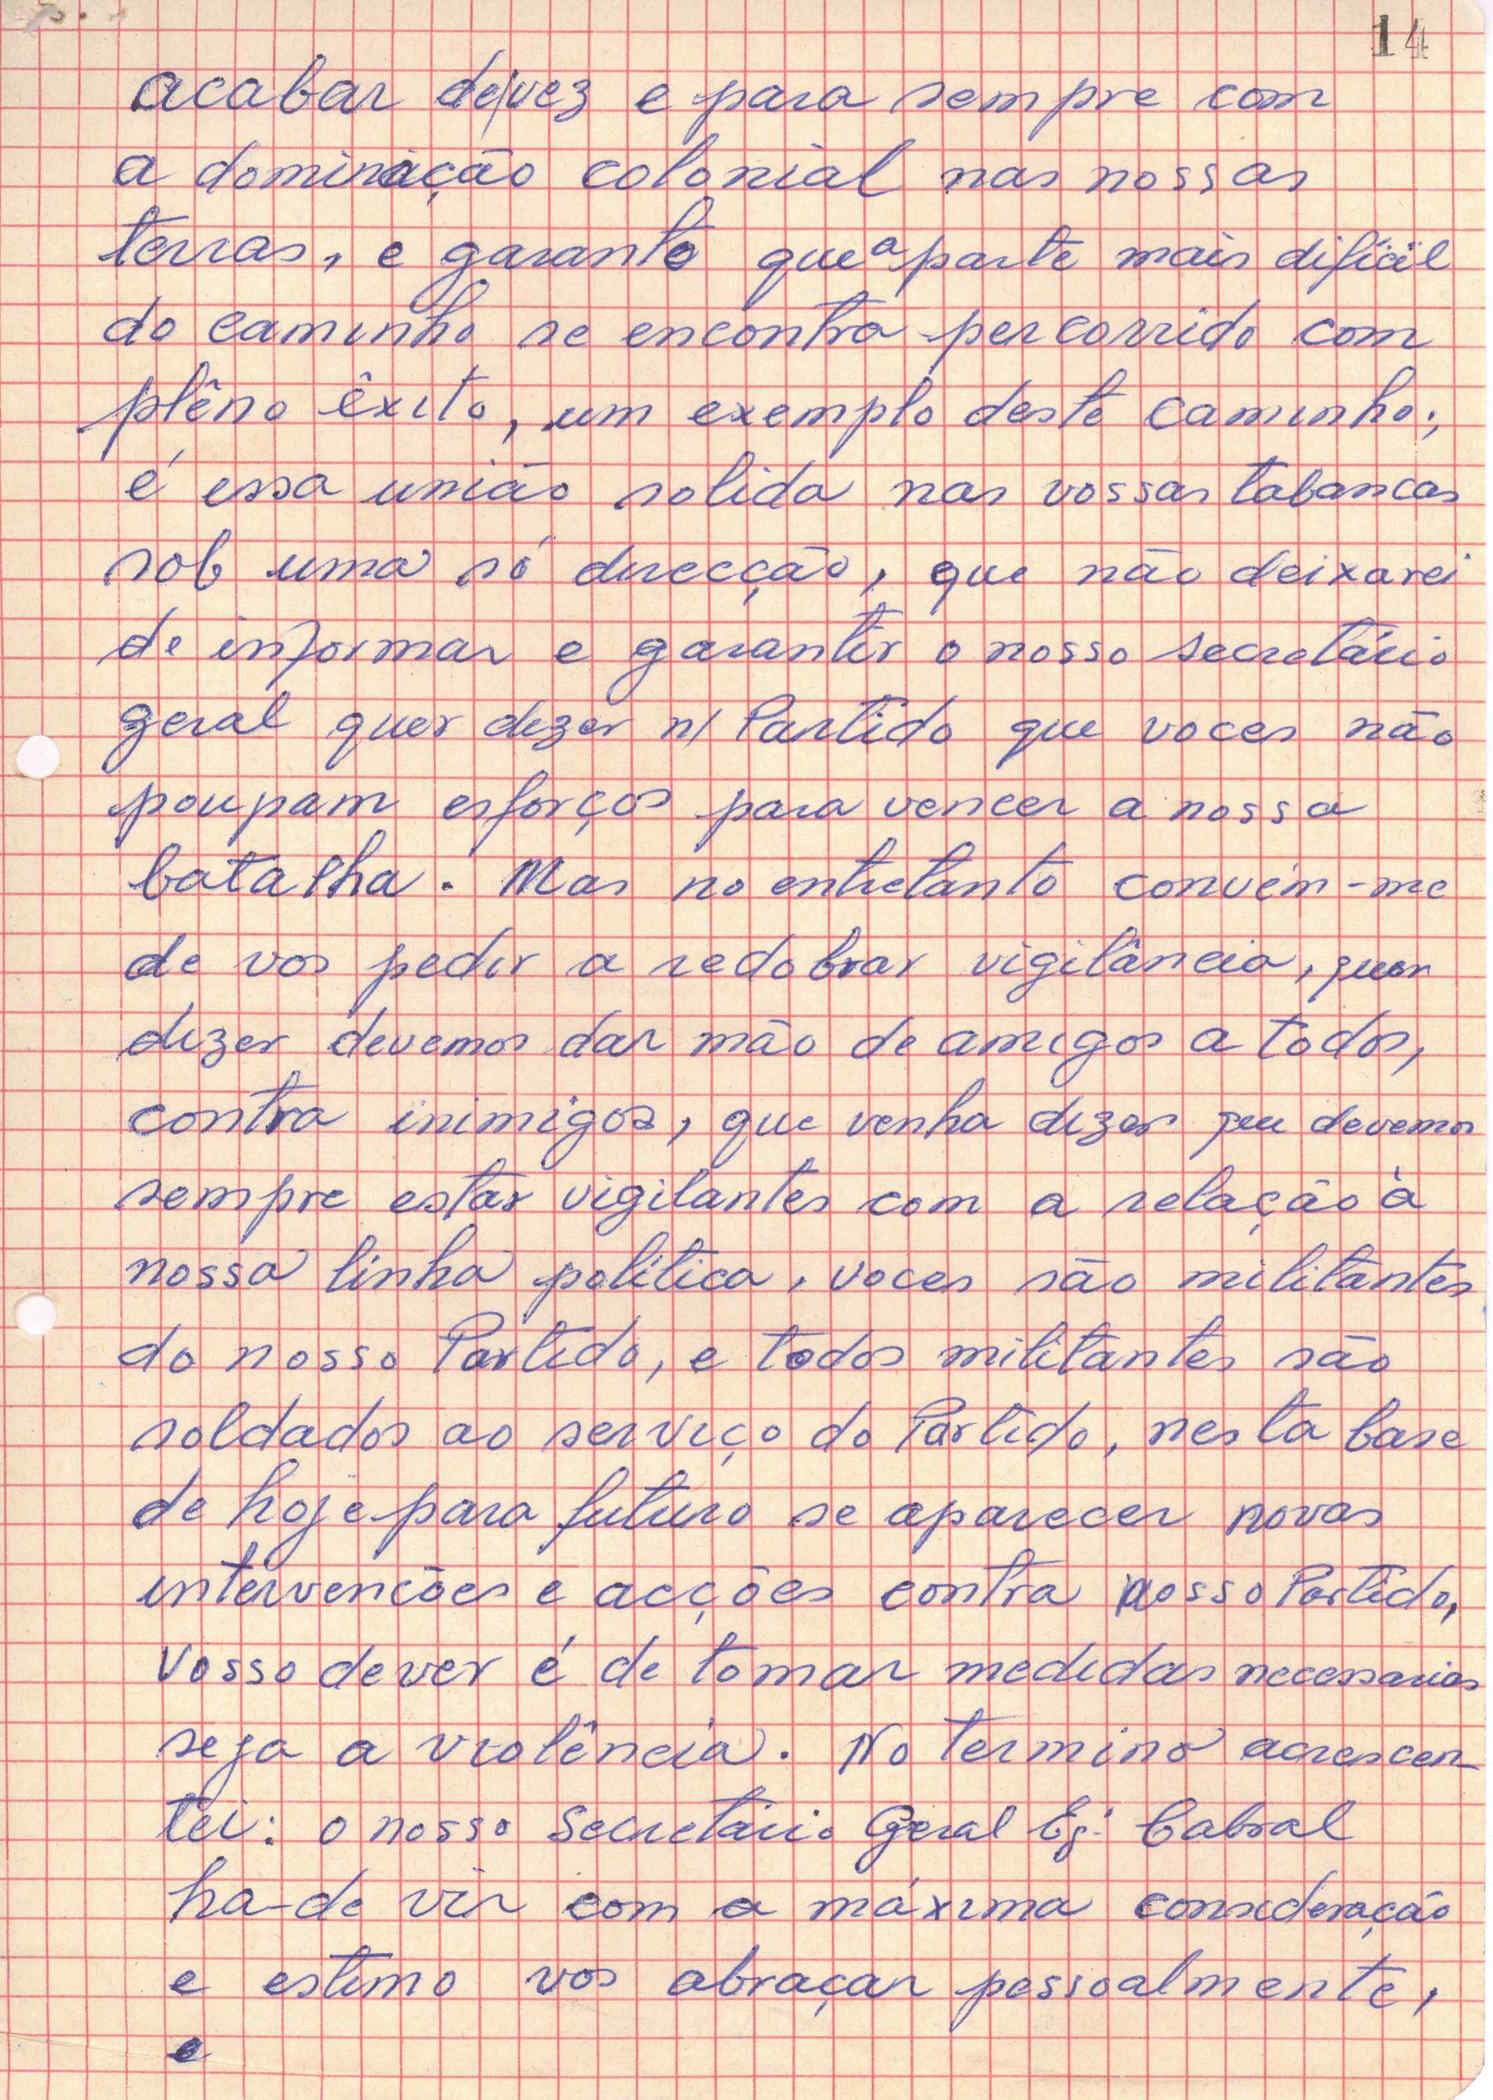 14
acabar de/vez e para sempre com
a dominação colonial nas nossas
terras, e garanto que a parte mais difícil
do caminho se encontra percorrido com
plêno êxito, um exemplo deste caminho;
é essa união solida nas vossas tabancas
sob uma só direcção, que não deixarei
de informar e garantir o nosso secretário
geral quer dizer n/ Partido que voces não
poupam esforços para vencer a nossa
batalha. Mas no entretanto convém-me
de vos pedir a redobrar vigilância, quer
dizer devemos dar mão de amigos a todos,
contra inimigos, que venha dizer que devemos
sempre estar vigilantes com a relação à
nossa linha política, voces são militantes
do nosso Partido, e todos militantes são
soldados ao serviço do Partido, nesta base
de hoje para futuro se aparecer novas
intervenções e acções contra nosso Partido,
vosso dever é de tomar medidas necessarias
seja a violência. No termino acrescen-
tei: o nosso Secretário Geral Eg: Cabral
ha-de vir com a máxima consideração
e estimo vos abraçar pessoalmente,
e